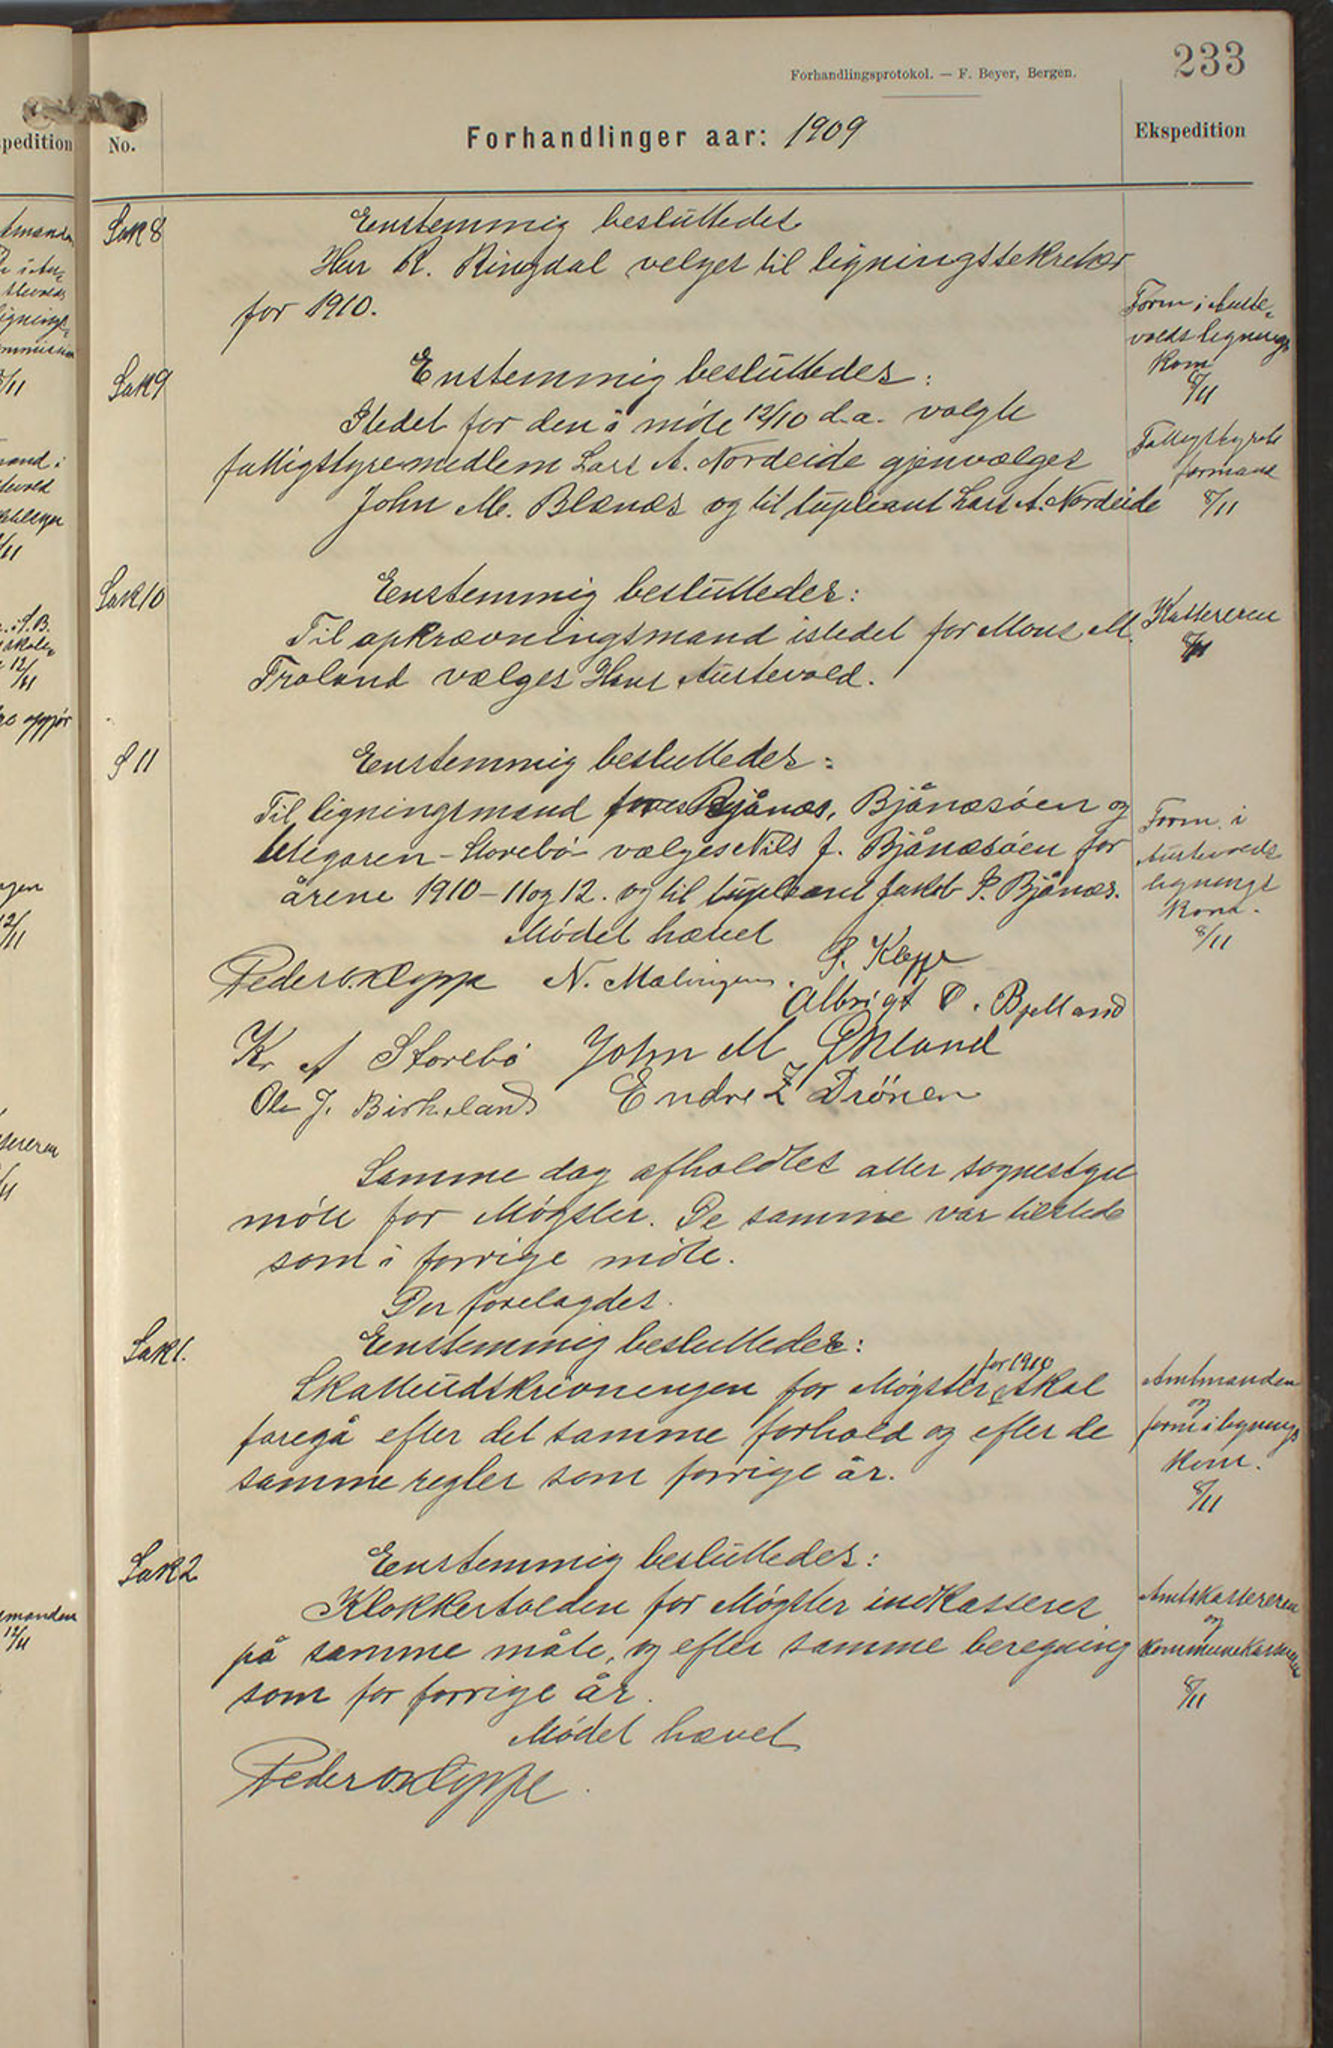 233
Forhandlingsprotokol. — F. Beyer, Bergen.
No.
Forhandlinger aar: 1909
Ekspedition
Sak 8
Eenstemmig besluttedes
Herr R. Ringdal velges til ligningssekretær
for 1910.
Form. i Auste-
volds lignings
kom
8/11
Sak 9
Enstemmig besluttedes:
Istedet for den i møte 12/10 d.a. valgte
fattigstyremedlem Lars A. Nordeide gjenvælges
John M. Blænes og til supleant Lars A. Nordeide
Fattigstyrets
formand
8/11
Sak 10
Eenstemmig besluttedes:
Til opkrævningsmand istedet for Mons M.
Froland vælges Hans Austevold.
Kassereren
8/11
S 11
Eenstemmig besluttedes:
Til ligningsmand Bjånæs, Bjånæsöen og
- Storebö vælges Nils J. Bjånæsöen for
årene 1910-11 og 12. og til supleant Jakob P. Bjånæs.
Mødet hævet
Form. i
Austevolds
lignings
kom.
8/11
Peder O. Kleppe N. Malingen. P. Kleppe
Albrigt O. Bjelland
Kr A Storebö John M Økland
Ole J. Birkeland Endre Z Drönen
Samme dag afholdtes atter sognestyre
möte for Møgster. De samme var tilstede
som i forrige möte.
Der forelagdes.
Sak 1.
Eenstemmig besluttedes:
Skatteudskrivningen for Møgster for 1910 skal
foregå efter det samme forhold og efter de
samme regler som forrige år.
Amtmanden
og
form i lignings
kom.
8/11
Sak 2
Eenstemmig besluttedes:
Klokkertolden for Møgster indkasseres
på samme måte, og efter samme beregning
som for forrige år.
Mødet hævet
Amtskassereren
og
kommunekasseren
8/11
Peder O. Kleppe.